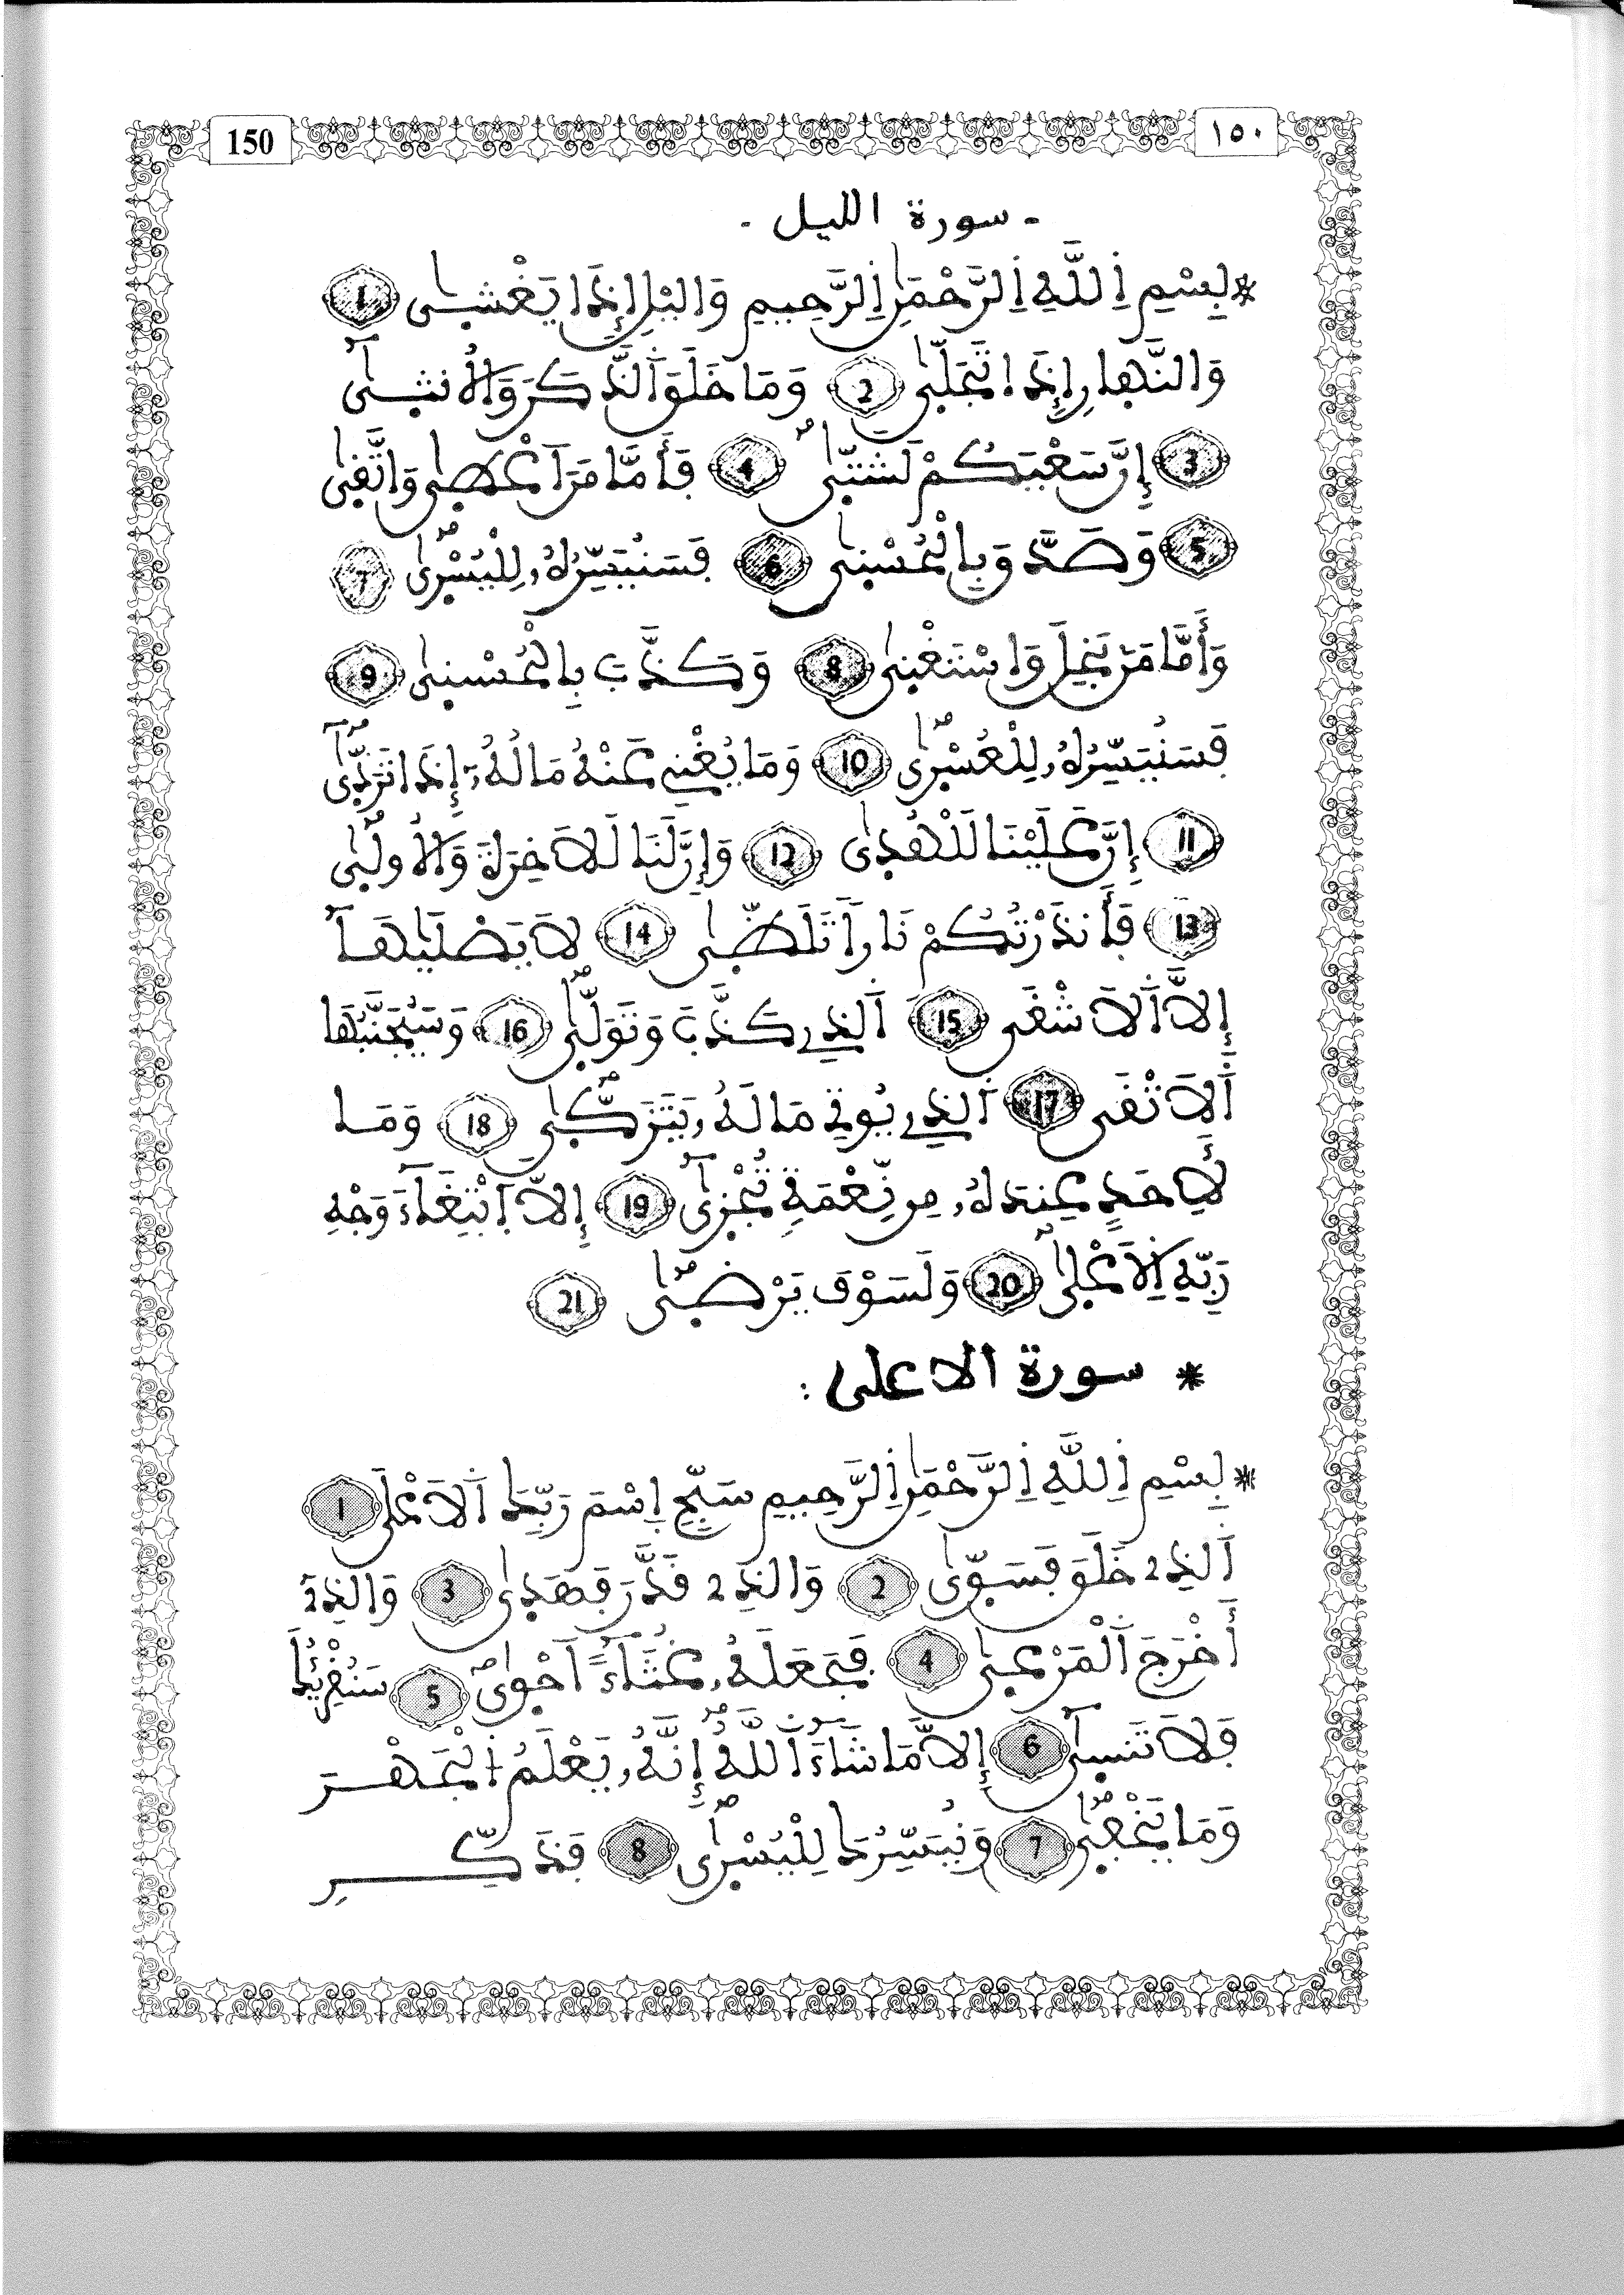 150
١٥٠
- سورة الليل -
* بِسْمِ اِ۬للَّهِ اِ۬لرَّحْمَٰنِ اِ۬لرَّحِيمِ وَاليْلِ إِذَا يَغْشَىٰ 1
وَالنَّهَارِ إِذَا تَجَلَّىٰ 2 وَمَا خَلَقَ اَ۬لذَّكَرَ وَالُانثَىٰٓ
3 إِنَّ سَعْيَكُمْ لَشَتَّىٰ 4 فَأَمَّا مَنَ اَعْطَىٰ وَاتَّقَىٰ
5 وَصَدَّقَ بِالْحُسْنَىٰ 6 فَسَنُيَسِّرُهُۥ لِلْيُسْرَىٰ 7
وَأَمَّا مَنۢ بَخِلَ وَاسْتَغْنَىٰ 8 وَكَذَّبَ بِالْحُسْنَىٰ 9
فَسَنُيَسِّرُهُۥ لِلْعُسْرَىٰ 10 وَمَا يُغْنِے عَنْهُ مَالُهُۥٓ إِذَا تَرَدَّىٰٓ
11 إِنَّ عَلَيْنَا لَلْهُدَىٰ 12 وَإِنَّ لَنَا لَلَاخِرَةَ وَالُاولَىٰ
13 فَأَنذَرْتُكُمْ نَاراٗ تَلَظَّىٰ 14 لَا يَصْلَيٰهَآ
إِلَّا اَ۬لَاشْقَى 15 اَ۬لذِے كَذَّبَ وَتَوَلَّىٰ 16 وَسَيُجَنَّبُهَا
اَ۬لَاتْقَى 17 اَ۬لذِے يُوتِے مَالَهُۥ يَتَزَكَّىٰ 18 وَمَا
لِأَحَدٍ عِندَهُۥ مِن نِّعْمَةٖ تُجْزَىٰٓ 19 إِلَّا اَ۪بْتِغَآءَ وَجْهِ
رَبِّهِ اِ۬لَاعْلَىٰ 20 وَلَسَوْفَ يَرْضَىٰ 21
* سورة الاعلى :
* بِسْمِ اِ۬للَّهِ اِ۬لرَّحْمَٰنِ اِ۬لرَّحِيمِ سَبِّحِ اِ۪سْمَ رَبِّكَ اَ۬لَاعْلَى 1
اَ۬لذِے خَلَقَ فَسَوّىٰ 2 وَالذِے قَدَّرَ فَهَدَىٰ 3 وَالذِےٓ
أَخْرَجَ اَ۬لْمَرْعَىٰ 4 فَجَعَلَهُۥ غُثَآءً اَحْوَىٰ 5 سَنُقْرِئُكَ
فَلَا تَنسَىٰٓ 6 إِلَّا مَا شَآءَ اَ۬للَّهُ إِنَّهُۥ يَعْلَمُ اُ۬لْجَهْرَ
وَمَا يَخْفَىٰ 7 وَنُيَسِّرُكَ لِلْيُسْرَىٰ 8 فَذَكِّرِ